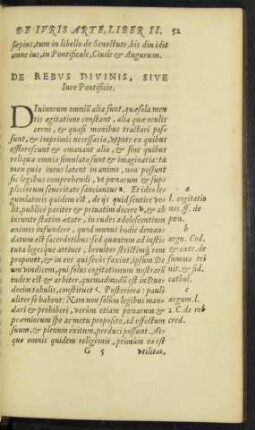 DE IVRIS ARTE, LIBER II. 52
sæpius, tum in libello de Senectute, bis diuidit
omne ius, in Pontificale, Ciuile & Augurum.
DE REBVS DIVINIS, SIVE
Iure Pontificio.
DIuinarum omniũ alia sunt, quæ sola men
tis agitatione constant, alia quæ oculis
cerni, & quasi manibus tractari pos-
sunt, & imprimis necessaria, vtpote ex quibus
efflorescunt & emanant alia, & sine quibus
reliqua omnis simulata sunt & imaginaria: ta
men quia intus latent in animo, non possunt
sic legibus comprehendi, vt pœnarum & sup-
pliciorum seueritate sanciantur a. Et ideo le-
gum latores quidem est, de iis quid sentire ve-
lit, publicè pariter & priuatim docere b, & ab
ineunte statim ætate, in rudes adolescentulorum
animos infundere, quod munus hodie deman-
datum est sacerdotibus: sed quatenus ad iustio-
ruta leges
proponet, & in eos qui secus faxint, ipsum De
um vindicem, qui solus cogitationum nostrarũ
index est & arbiter, quemadmodũ est in Duo-
decim tabulis, constituet c. Posteriora: pauli
aliter se habent: Nam non solùm legibus man-
dari & prohiberi, verùm etiam pœnarum &
præmiorum spe ac metu proposito, ad effectum
suum, & plenum exitum, perduci possunt. At-
que omnis quidem religionis, primùm est
G 5 vtilitas,
a
l. cogitatio
nis. ff. de
pœn.
b
argu. Cod.
& extr. de
summa tri
nit. & fid.
cathol.
c
argum. l.
2. C. de reb
cred.